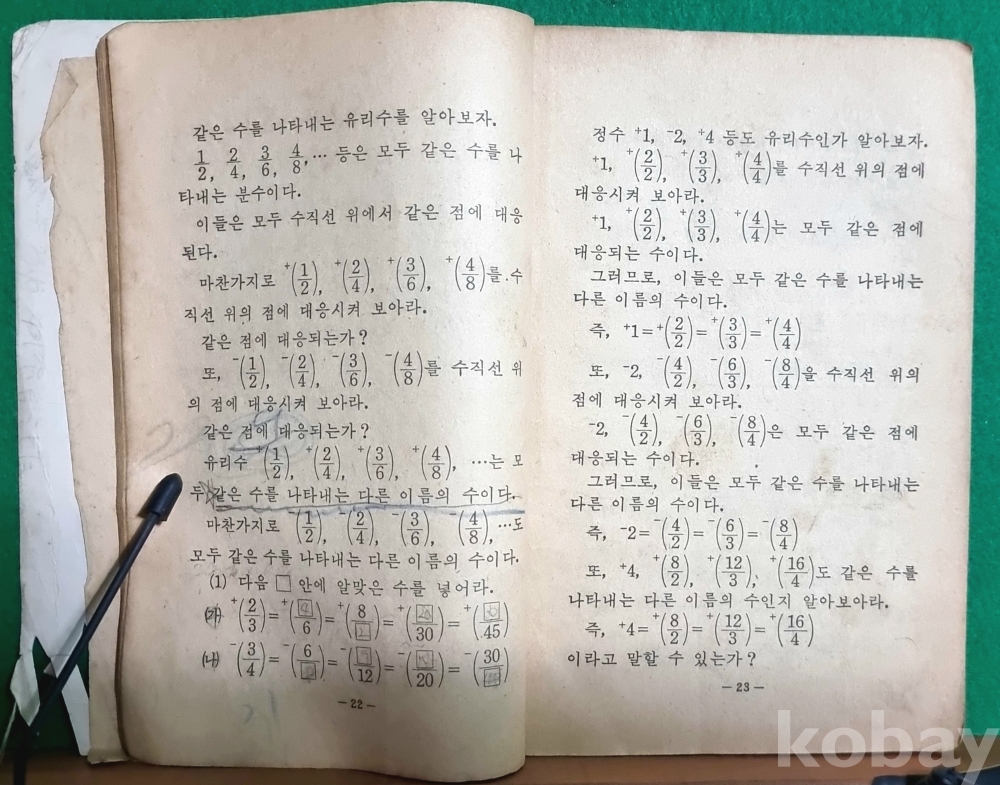 같은 수를 나타내는 유리수를 알아보자.
1/2, 2/4, 3/6, 4/8, … 등은 모두 같은 수를 나
타내는 분수이다.
이들은 모두 수직선 위에서 같은 점에 대응
된다.
마찬가지로 ⁺(1/2), ⁺(2/4), ⁺(3/6), ⁺(4/8)를 수
직선 위의 점에 대응시켜 보아라.
같은 점에 대응되는가?
또, ⁻(1/2), ⁻(2/4), ⁻(3/6), ⁻(4/8)를 수직선 위
의 점에 대응시켜 보아라.
같은 점에 대응되는가?
유리수 ⁺(1/2), ⁺(2/4), ⁺(3/6), ⁺(4/8), …는 모
두 같은 수를 나타내는 다른 이름의 수이다.
마찬가지로 ⁻(1/2), ⁻(2/4), ⁻(3/6), ⁻(4/8), …도
모두 같은 수를 나타내는 다른 이름의 수이다.
(1) 다음 □ 안에 알맞은 수를 넣어라.
(가) ⁺(2/3)=⁺(□/6)=⁺(8/□)=⁺(□/30)=⁺(□/45)
(나) ⁻(3/4)=⁻(6/□)=⁻(□/12)=⁻(□/20)=⁻(30/□)
—22—
정수 ⁺1, ⁻2, ⁺4 등도 유리수인가 알아보자.
⁺1, ⁺(2/2), ⁺(3/3), ⁺(4/4)를 수직선 위의 점에
대응시켜 보아라.
⁺1, ⁺(2/2), ⁺(3/3), ⁺(4/4)는 모두 같은 점에
대응되는 수이다.
그러므로, 이들은 모두 같은 수를 나타내는
다른 이름의 수이다.
즉, ⁺1=⁺(2/2)=⁺(3/3)=⁺(4/4)
또, ⁻2, ⁻(4/2), ⁻(6/3), ⁻(8/4)을 수직선 위의
점에 대응시켜 보아라.
⁻2, ⁻(4/2), ⁻(6/3), ⁻(8/4)은 모두 같은 점에
대응되는 수이다.
그러므로, 이들은 모두 같은 수를 나타내는
다른 이름의 수이다.
즉, ⁻2=⁻(4/2)=⁻(6/3)=⁻(8/4)
또, ⁺4, ⁺(8/2), ⁺(12/3), ⁺(16/4)도 같은 수를
나타내는 다른 이름의 수인지 알아보아라.
즉, ⁺4=⁺(8/2)=⁺(12/3)=⁺(16/4)
이라고 말할 수 있는가?
—23—
kobay